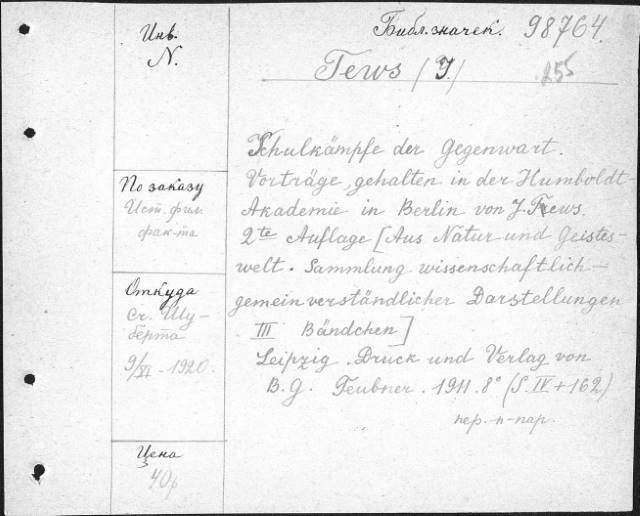 Инв.
N.
По заказу
Ист. фил.
фак-та
Откуда
Ст. Шу-
берта
9/VI - 1920.
Цена
40р
Библ. значек. 98764.
Tews (J.)
Schulkämpfe der Gegenwart.
Vorträge, gehalten in der Humboldt-
Akademie in Berlin von J. Tews.
2te Auflage [Aus Natur und Geistes-
welt. Sammlung wissenschaftlich-
gemeinverständlicher Darstellungen
III Bändchen]
Leipzig. Druck und Verlag von
B. G. Teubner. 1911. 8° (S. IV + 162)
пер.-п-пар.